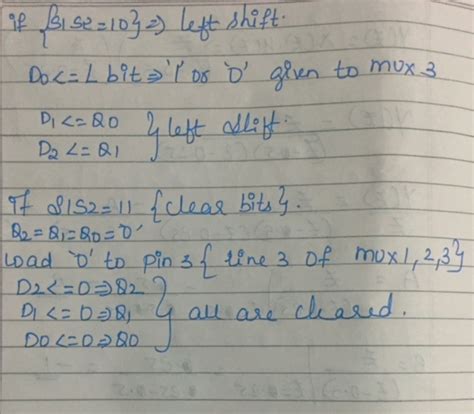 If {S1S2=10} => left shift.
D0<=L bit=>'1' or '0' given to mux 3
D1<=Q0
D2<=Q1 } left shift.
If S1S2=11 {clear bits}.
Q2=Q1=Q0='0'
Load '0' to pin 3 { line 3 of mux1,2,3}
D2<=0=>Q2
D1<=0=>Q1 } all are cleared.
D0<=0=>Q0